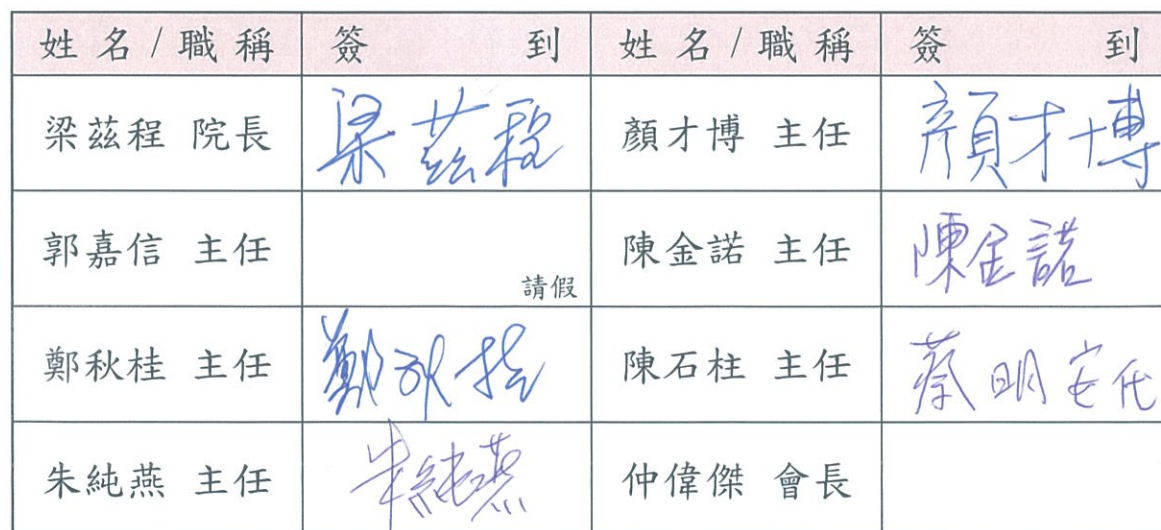 姓名/職稱 簽到 姓名/職稱 簽到
梁茲程 院長 梁茲程 顏才博 主任 顏才博
郭嘉信 主任 請假 陳金諾 主任 陳金諾
鄭秋桂 主任 鄭秋桂 陳石柱 主任 蔡明宏代
朱純燕 主任 朱純燕 仲偉傑 會長